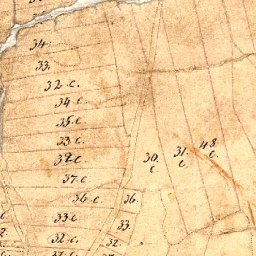 34.
33.
32 c.
34 c.
35 c.
33 c
37 c
37 c.
36 c.
33 c
32 c.
30.
c
31.
c
48
c.
36.
33.
32